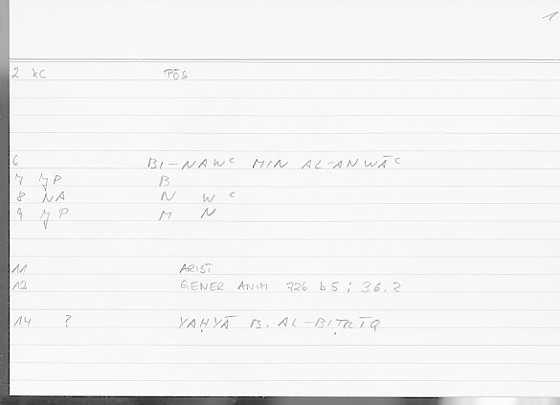 1
2 XC PŌS
6 BI-NAWᶜ MIN AL-ANWĀᶜ
7 JP B
8 NA N W ᶜ
9 JP M N
11 ARIST
12 GENER ANIM 726 b5; 36.2
14 ? YAḤYĀ B. AL-BIṬRĪQ